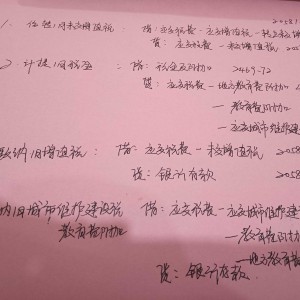 1. 结转 1月未交增值税 借：应交税费－应交增值税－转出未交增 20581
贷：应交税费－未交增值税 2058
2. 计提 1月税金：借：税金及附加 2469.72
贷：应交税费－地方教育费附加
－教育费附加
－应交城市维
缴纳1月增值税：借：应交税费－未交增值税 2058
贷：银行存款 2058
纳1月城市维护建设税 借：应交税费－应交城市维护建
教育费附加 －教育费附加
－地方教育费
贷：银行存款.